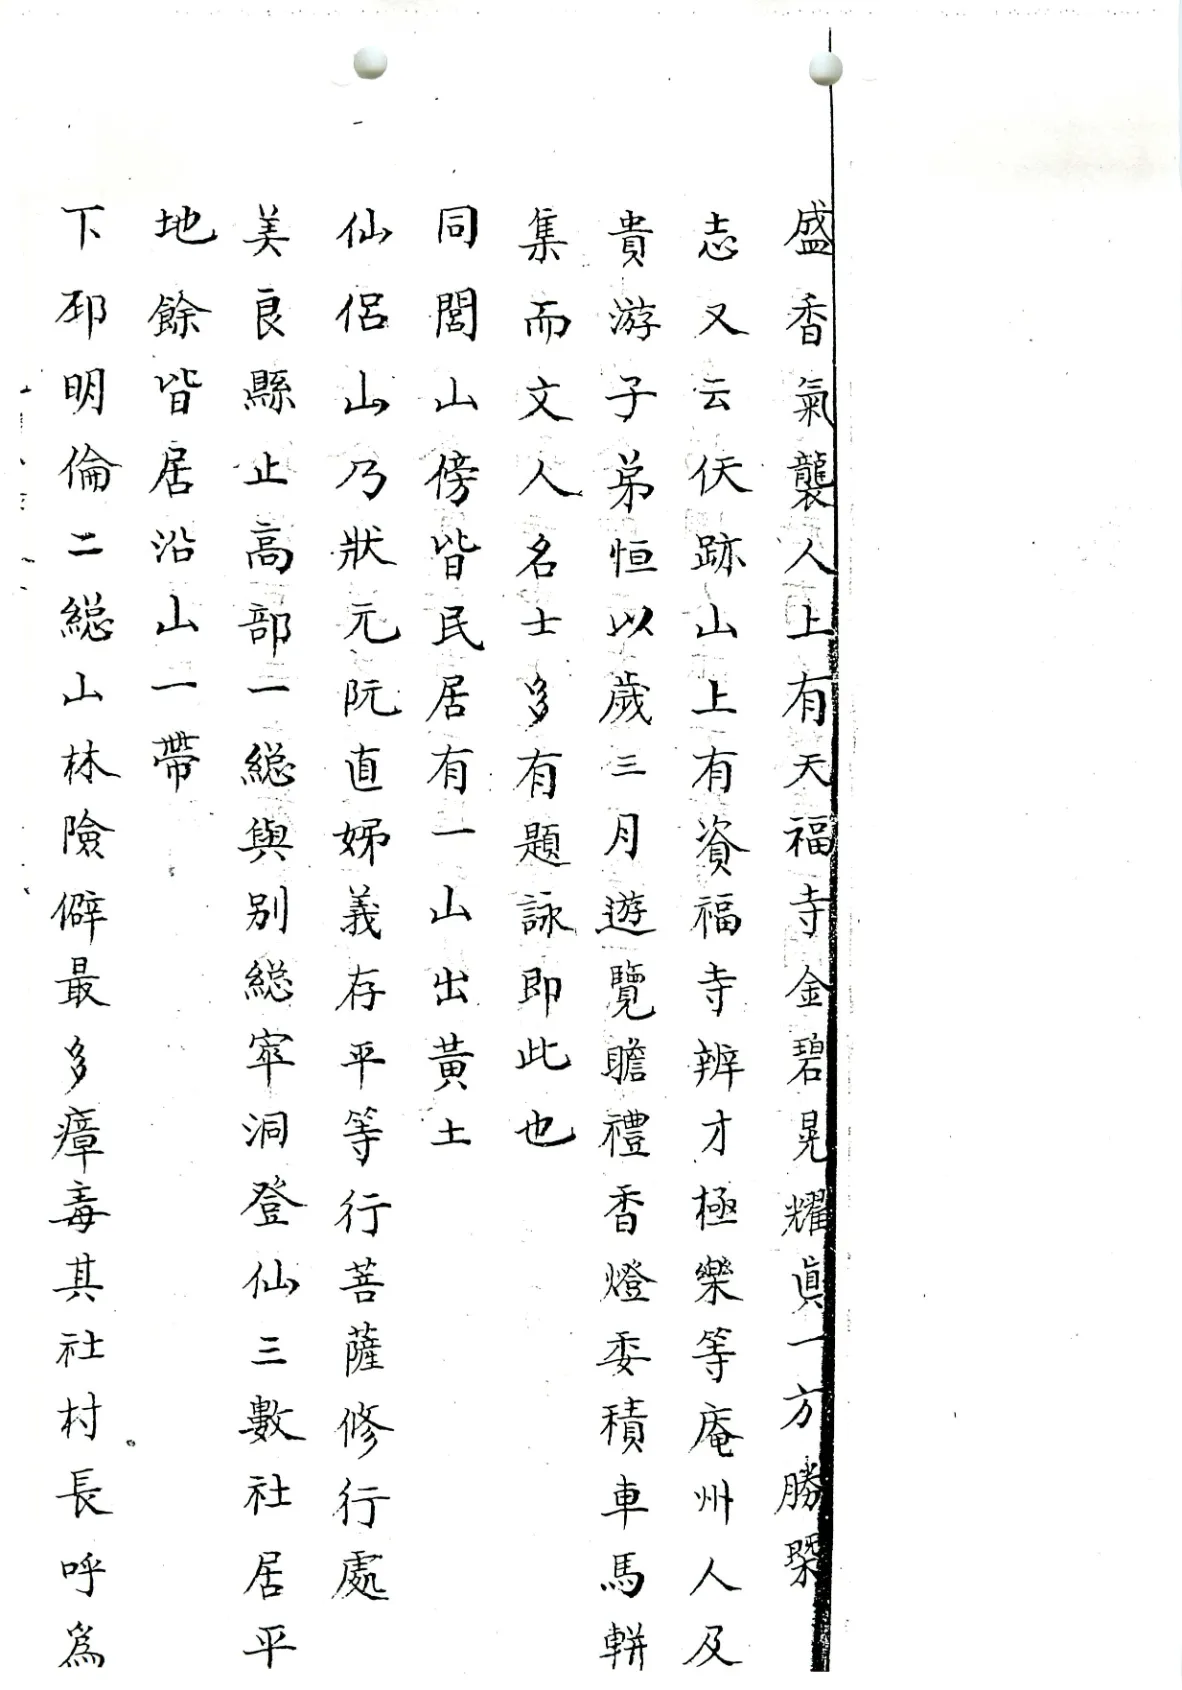 盛香氣襲人上有天福寺金碧晃耀眞一方勝槩
志又云伏跡山上有資福寺辨才極樂等庵州人及
貴游子弟恒以歲三月遊覽瞻禮香燈委積車馬軿
集而文人名士多有題詠即此也
同閭山傍皆民居有一山出黃土
仙侶山乃狀元阮直姊義存平等行菩薩修行處
美良縣止高部一総與别総窂洞登仙三數社居平
地餘皆居沿山一帶
下邳明倫二総山林險僻最多瘴毒其社村長呼爲